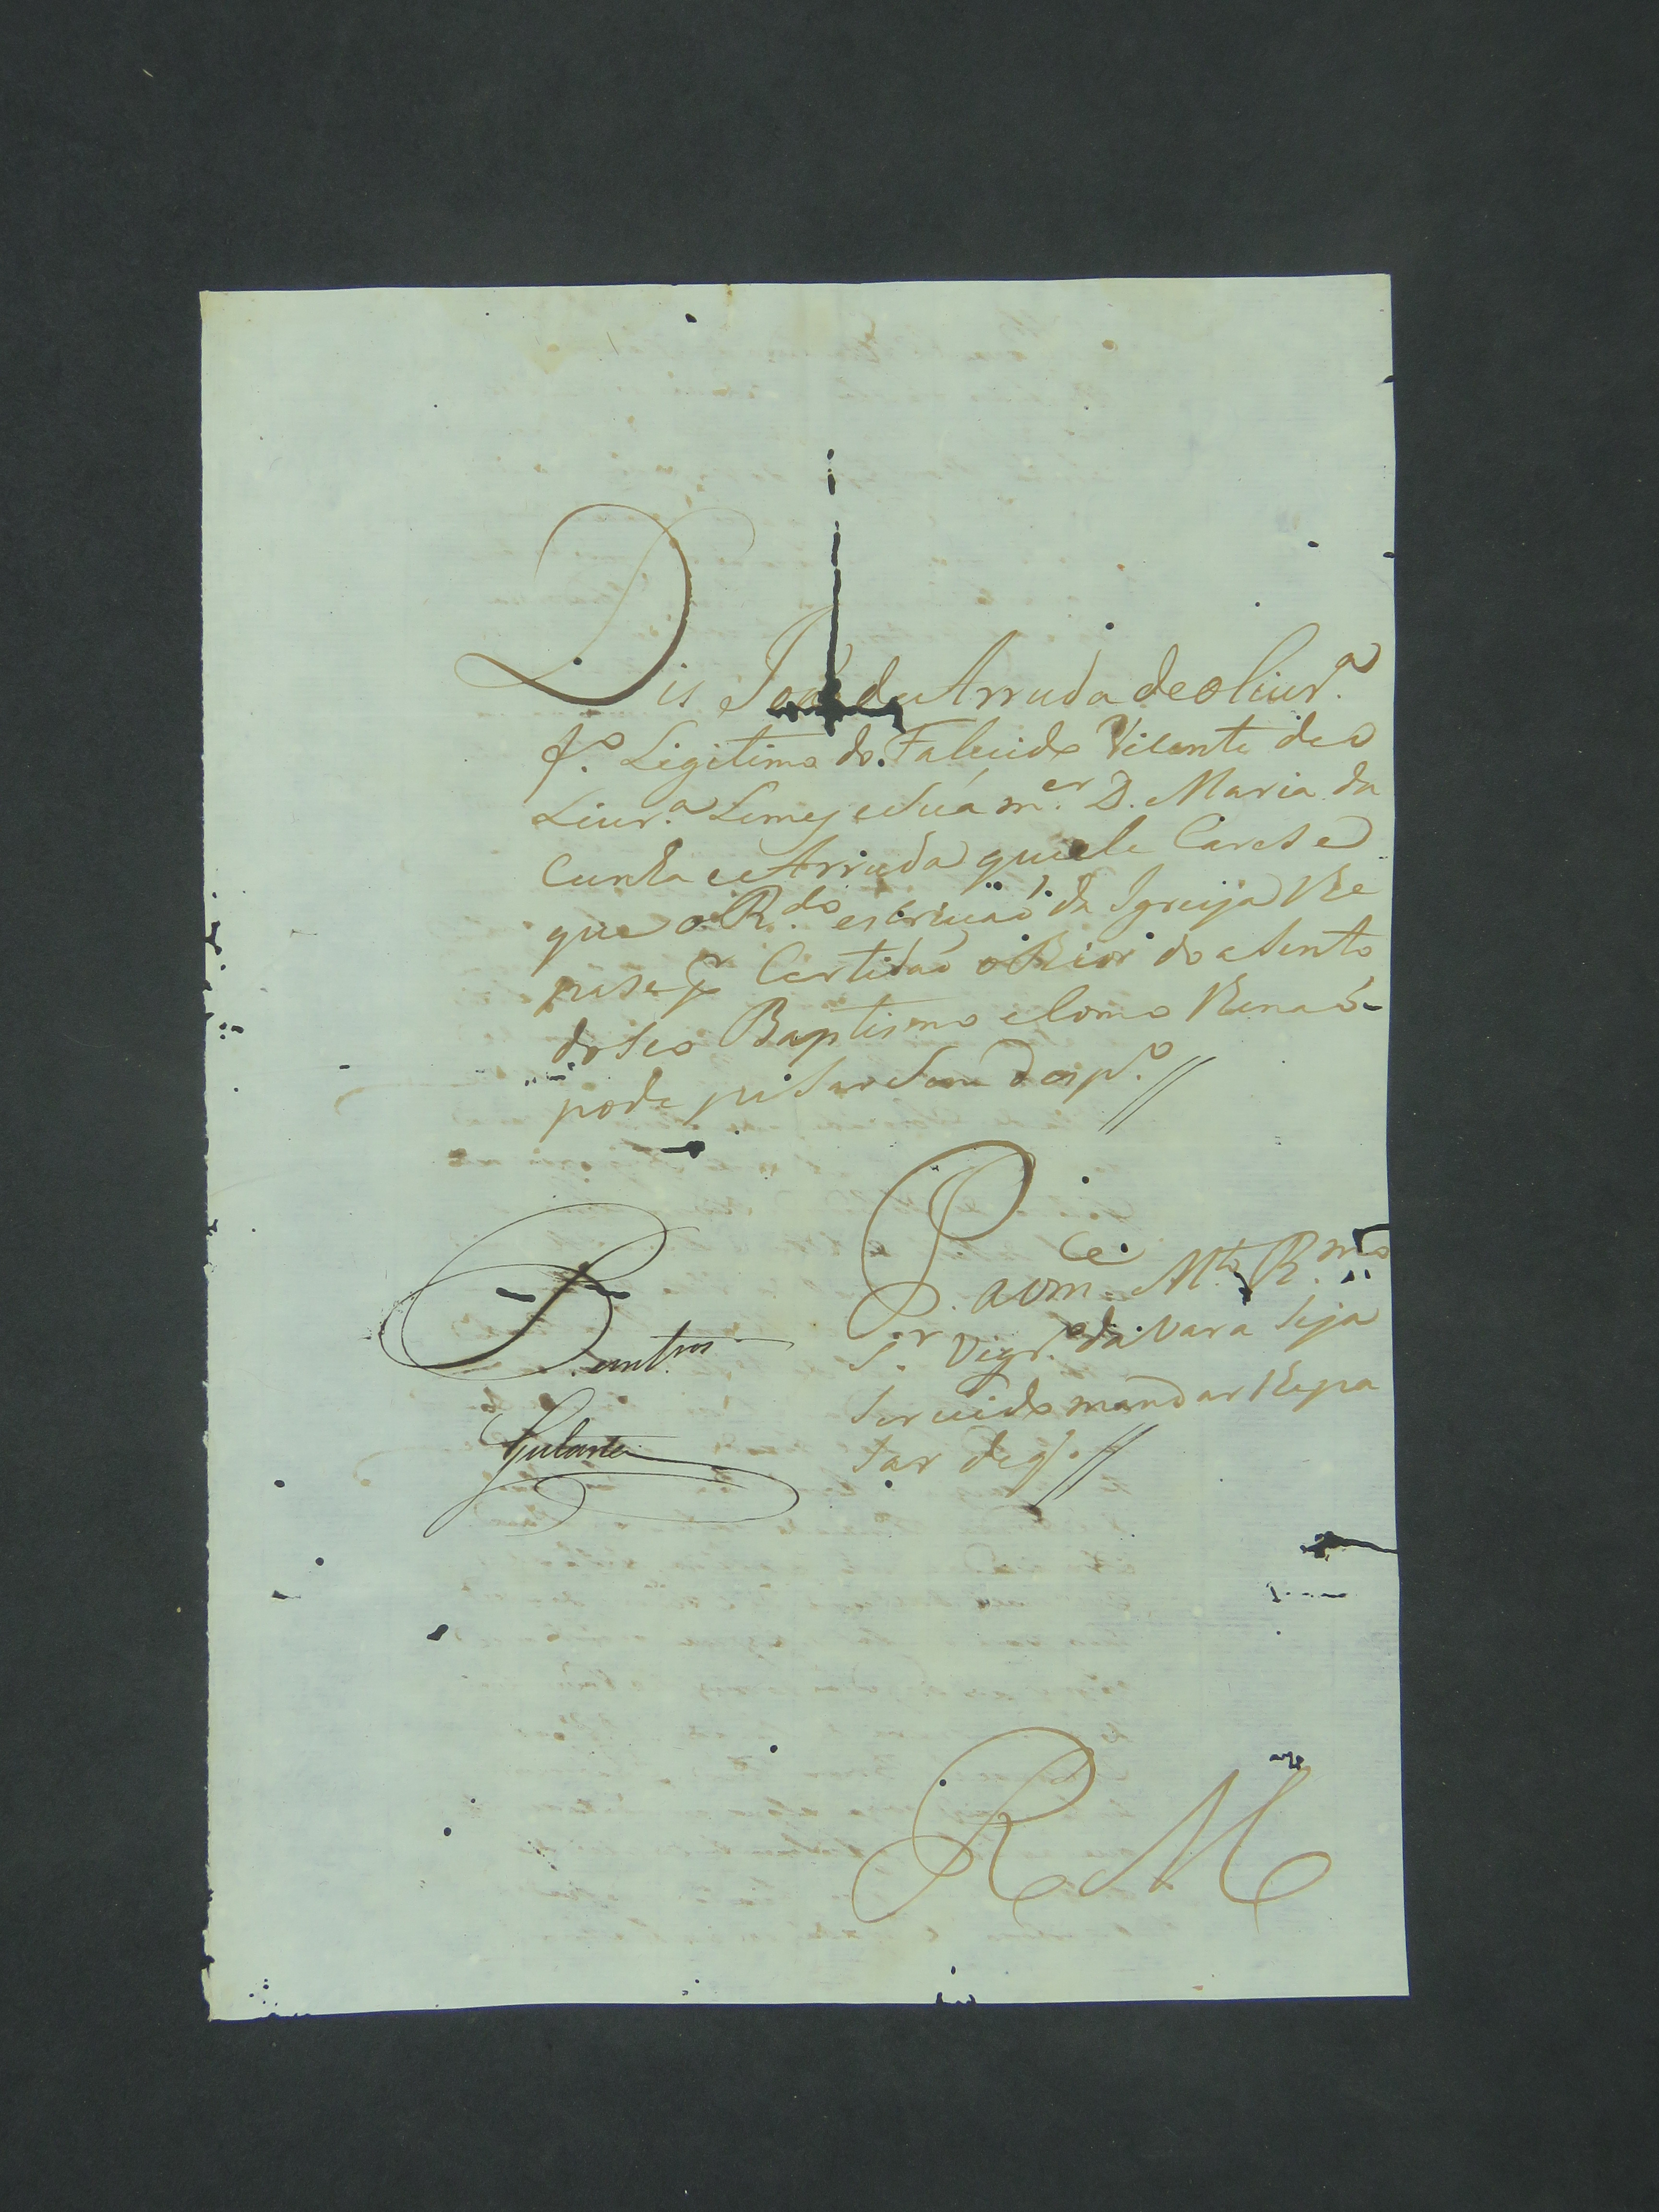 Dis João de Arruda de oliur.ª
f.º Ligitimo do Falecido Vicente de o
Liur.ª Lemes e Sua m.er D. Maria da
Cunha e Arruda que ele Carese
que o R.do escrivaó da Igreija Re
pase p Certidaó o tior do asento
do Seo Baptismo e Como Senaó
pode pasar Sem desp.º //
P. a vm.ce M.to R.mo
S.r Vigr.º da Vara Seja
Servido mandar Repa
Sar de q. //
Gularte
R M